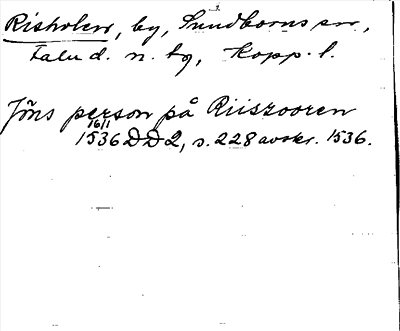 Risholen, by, Sundborns sn,
Falu d. n. tg, Kopp. l.
Jöns person på Riiszooren
16/1
1536 DD2, s. 228 avskr. 1536.